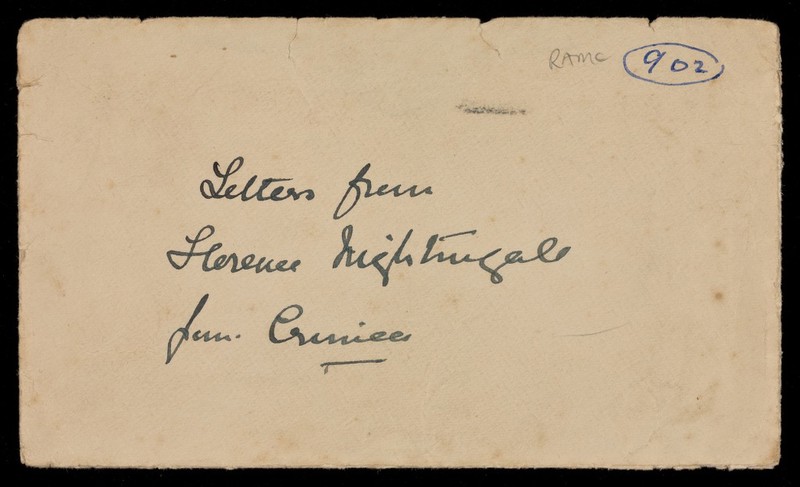 RAMC 902
Letters from
Florence Nightingale
from Crimea